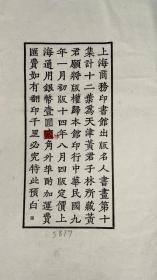 上海商務印書館出版名人書畫第十
集計十二葉爲天津黃君子林所藏黃
君願將版權歸本館印行中華民國九
年一月初版十四年八月四版定價上
海通用銀幣壹圓角外埠酌加運費
匯費如有翻印千里必究特此預白
5817